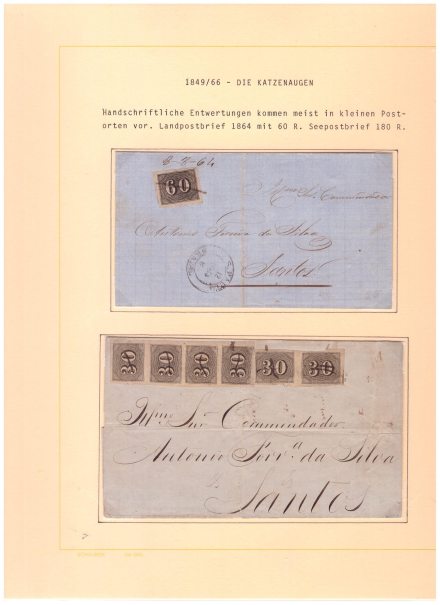 1849/66 - DIE KATZENAUGEN
Handschriftliche Entwertungen kommen meist in kleinen Post-
orten vor. Landpostbrief 1864 mit 60 R. Seepostbrief 180 R.
60
Antonio da Silva
Santos
30 30 30 30 30 30
Illmo Snr Commendador
Antonio Ferra da Silva
Santos